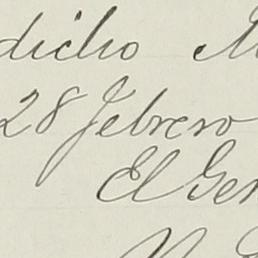 dicho
28 Febrero
El Ger